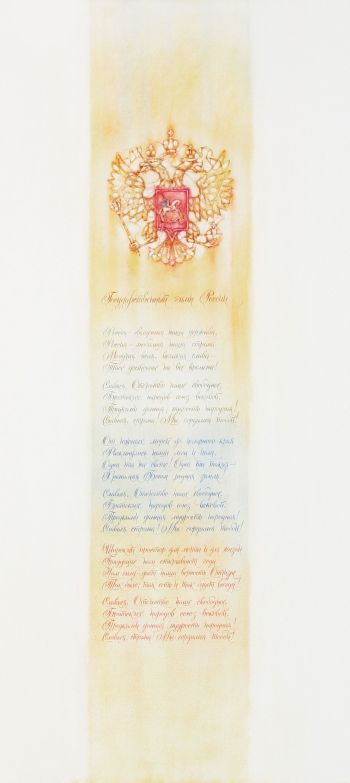 Государственный гимн России
Россия — священная наша держава,
Россия — любимая наша страна.
Могучая воля, великая слава —
Твоё достоянье на все времена!
Славься, Отечество наше свободное,
Братских народов союз вековой,
Предками данная мудрость народная!
Славься, страна! Мы гордимся тобой!
От южных морей до полярного края
Раскинулись наши леса и поля.
Одна ты на свете! Одна ты такая —
Хранимая Богом родная земля.
Славься, Отечество наше свободное,
Братских народов союз вековой,
Предками данная мудрость народная!
Славься, страна! Мы гордимся тобой!
Широкий простор для мечты и для жизни
Грядущие нам открывают года.
Нам силу даёт наша верность Отчизне.
Так было, так есть и так будет всегда!
Славься, Отечество наше свободное,
Братских народов союз вековой,
Предками данная мудрость народная!
Славься, страна! Мы гордимся тобой!